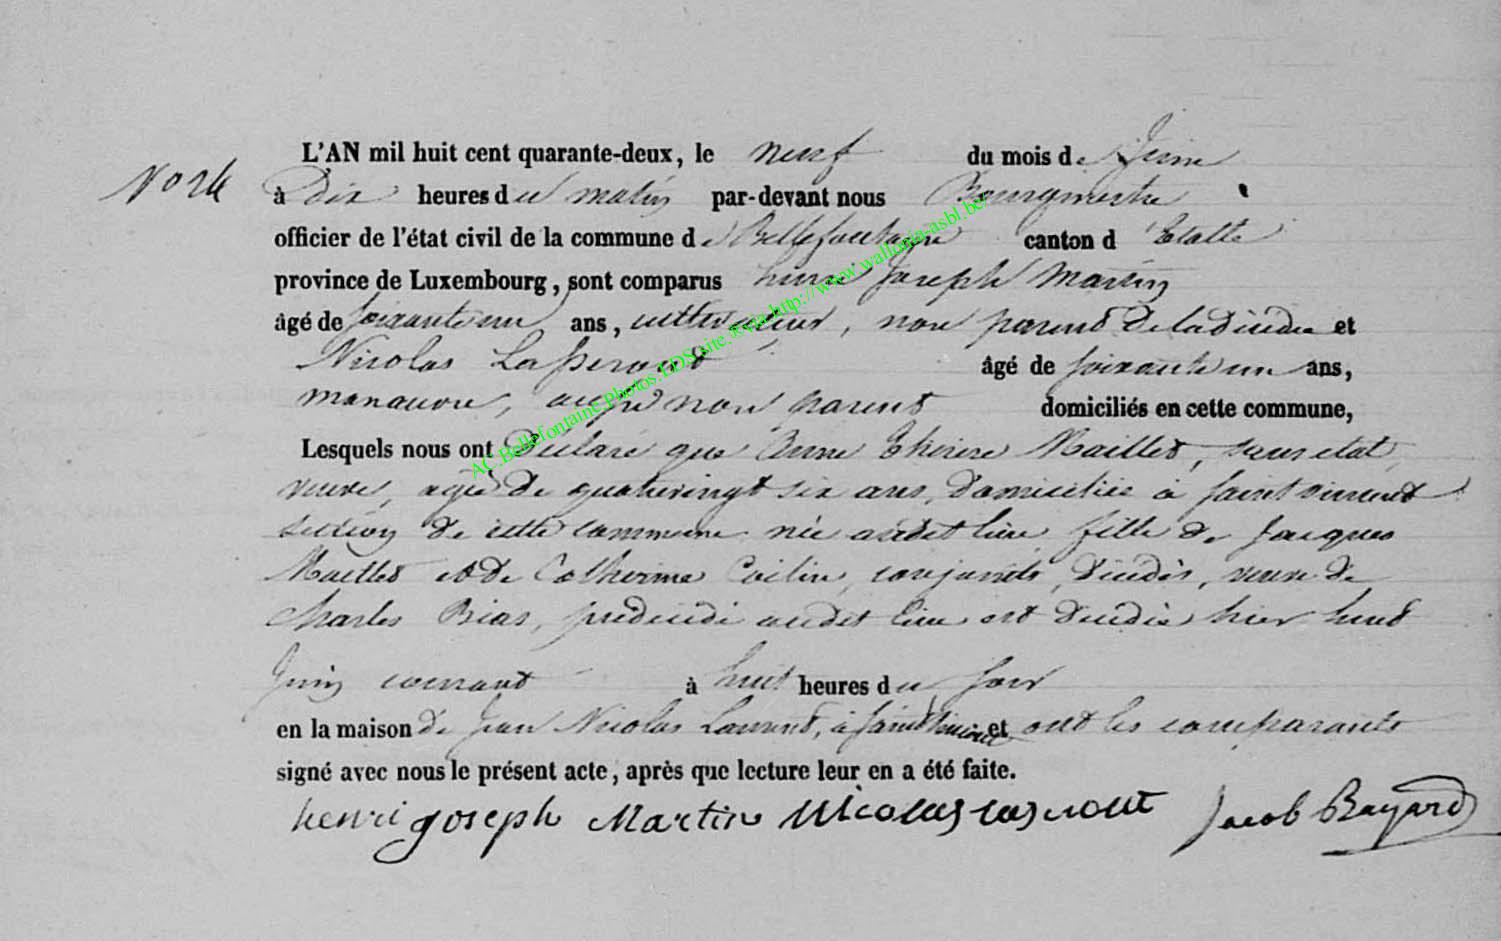 L'AN mil huit cent quarante-deux, le neuf du mois de Juin
à Dix heures du matin par-devant nous Bourgmestre
officier de l'état civil de la commune de Bellefontaine canton d'Etalle
province de Luxembourg, sont comparus henri Joseph Martin
âgé de soixante un ans, cultivateur, non parent de la décédée et
Nicolas Lasseront âgé de soixante un ans,
manœuvre, aussi non parent domiciliés en cette commune,
Lesquels nous ont Déclaré que Anne Thérèse Maillet, sans état,
veuve, agée de quatrevingt six ans, Domiciliée à Saint vincent
section de cette commune née audit lieu fille de Jacques
Maillet et de Catherine conjoints, Décédés, veuve de
Charles Bias, prédécédé audit lieu est Décédée hier huit
Juin courant à huit heures du soir
en la maison de Jean Nicolas Laurent, à Saint Vincent et ont les comparants
signé avec nous le présent acte, après que lecture leur en a été faite.
henri joseph Martin Nicolas Jacob Bayard
AC.Bellefontaine.Photos.LDS.site.®via.http://www.wallonia-asbl.be/